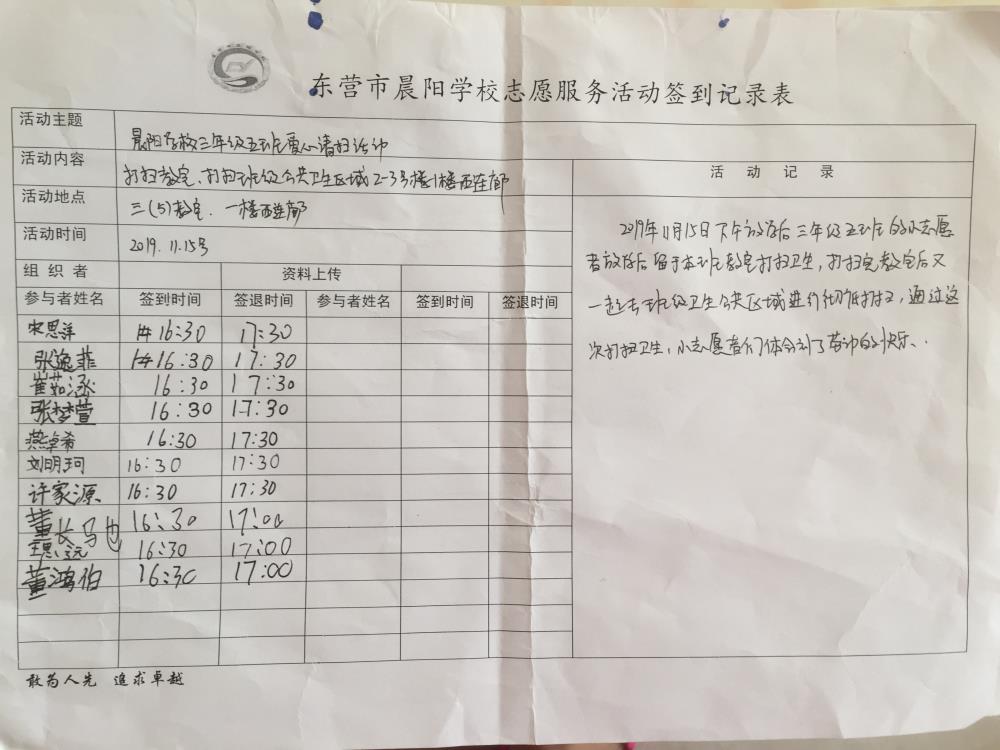 东营市晨阳学校志愿服务活动签到记录表
活动主题 晨阳学校三年级五班爱心清扫活动
活动内容 打扫教室、打扫班级公共卫生区域2-3号楼1楼西连廊
活动地点 三(5)教室、一楼西连廊
活动时间 2019.11.15号
组织者 资料上传
参与者姓名 签到时间 签退时间 参与者姓名 签到时间 签退时间
宋思洋 16:30 17:30
张逸菲 16:30 17:30
崔茹涵 16:30 17:30
张梦萱 16:30 17:30
燕卓希 16:30 17:30
刘明珂 16:30 17:30
许家源 16:30 17:30
董长 16:30 17:00
16:30 17:00
董鸿伯 16:30 17:00
活动记录
2019年11月15日下午放学后三年级五班的小志愿
者放学后留于本班教室打扫卫生,打扫完教室后又
一起去班级卫生公共区域进行彻底打扫,通过这
次打扫卫生,小志愿者们体会到了劳动的快乐..
敢为人先 追求卓越